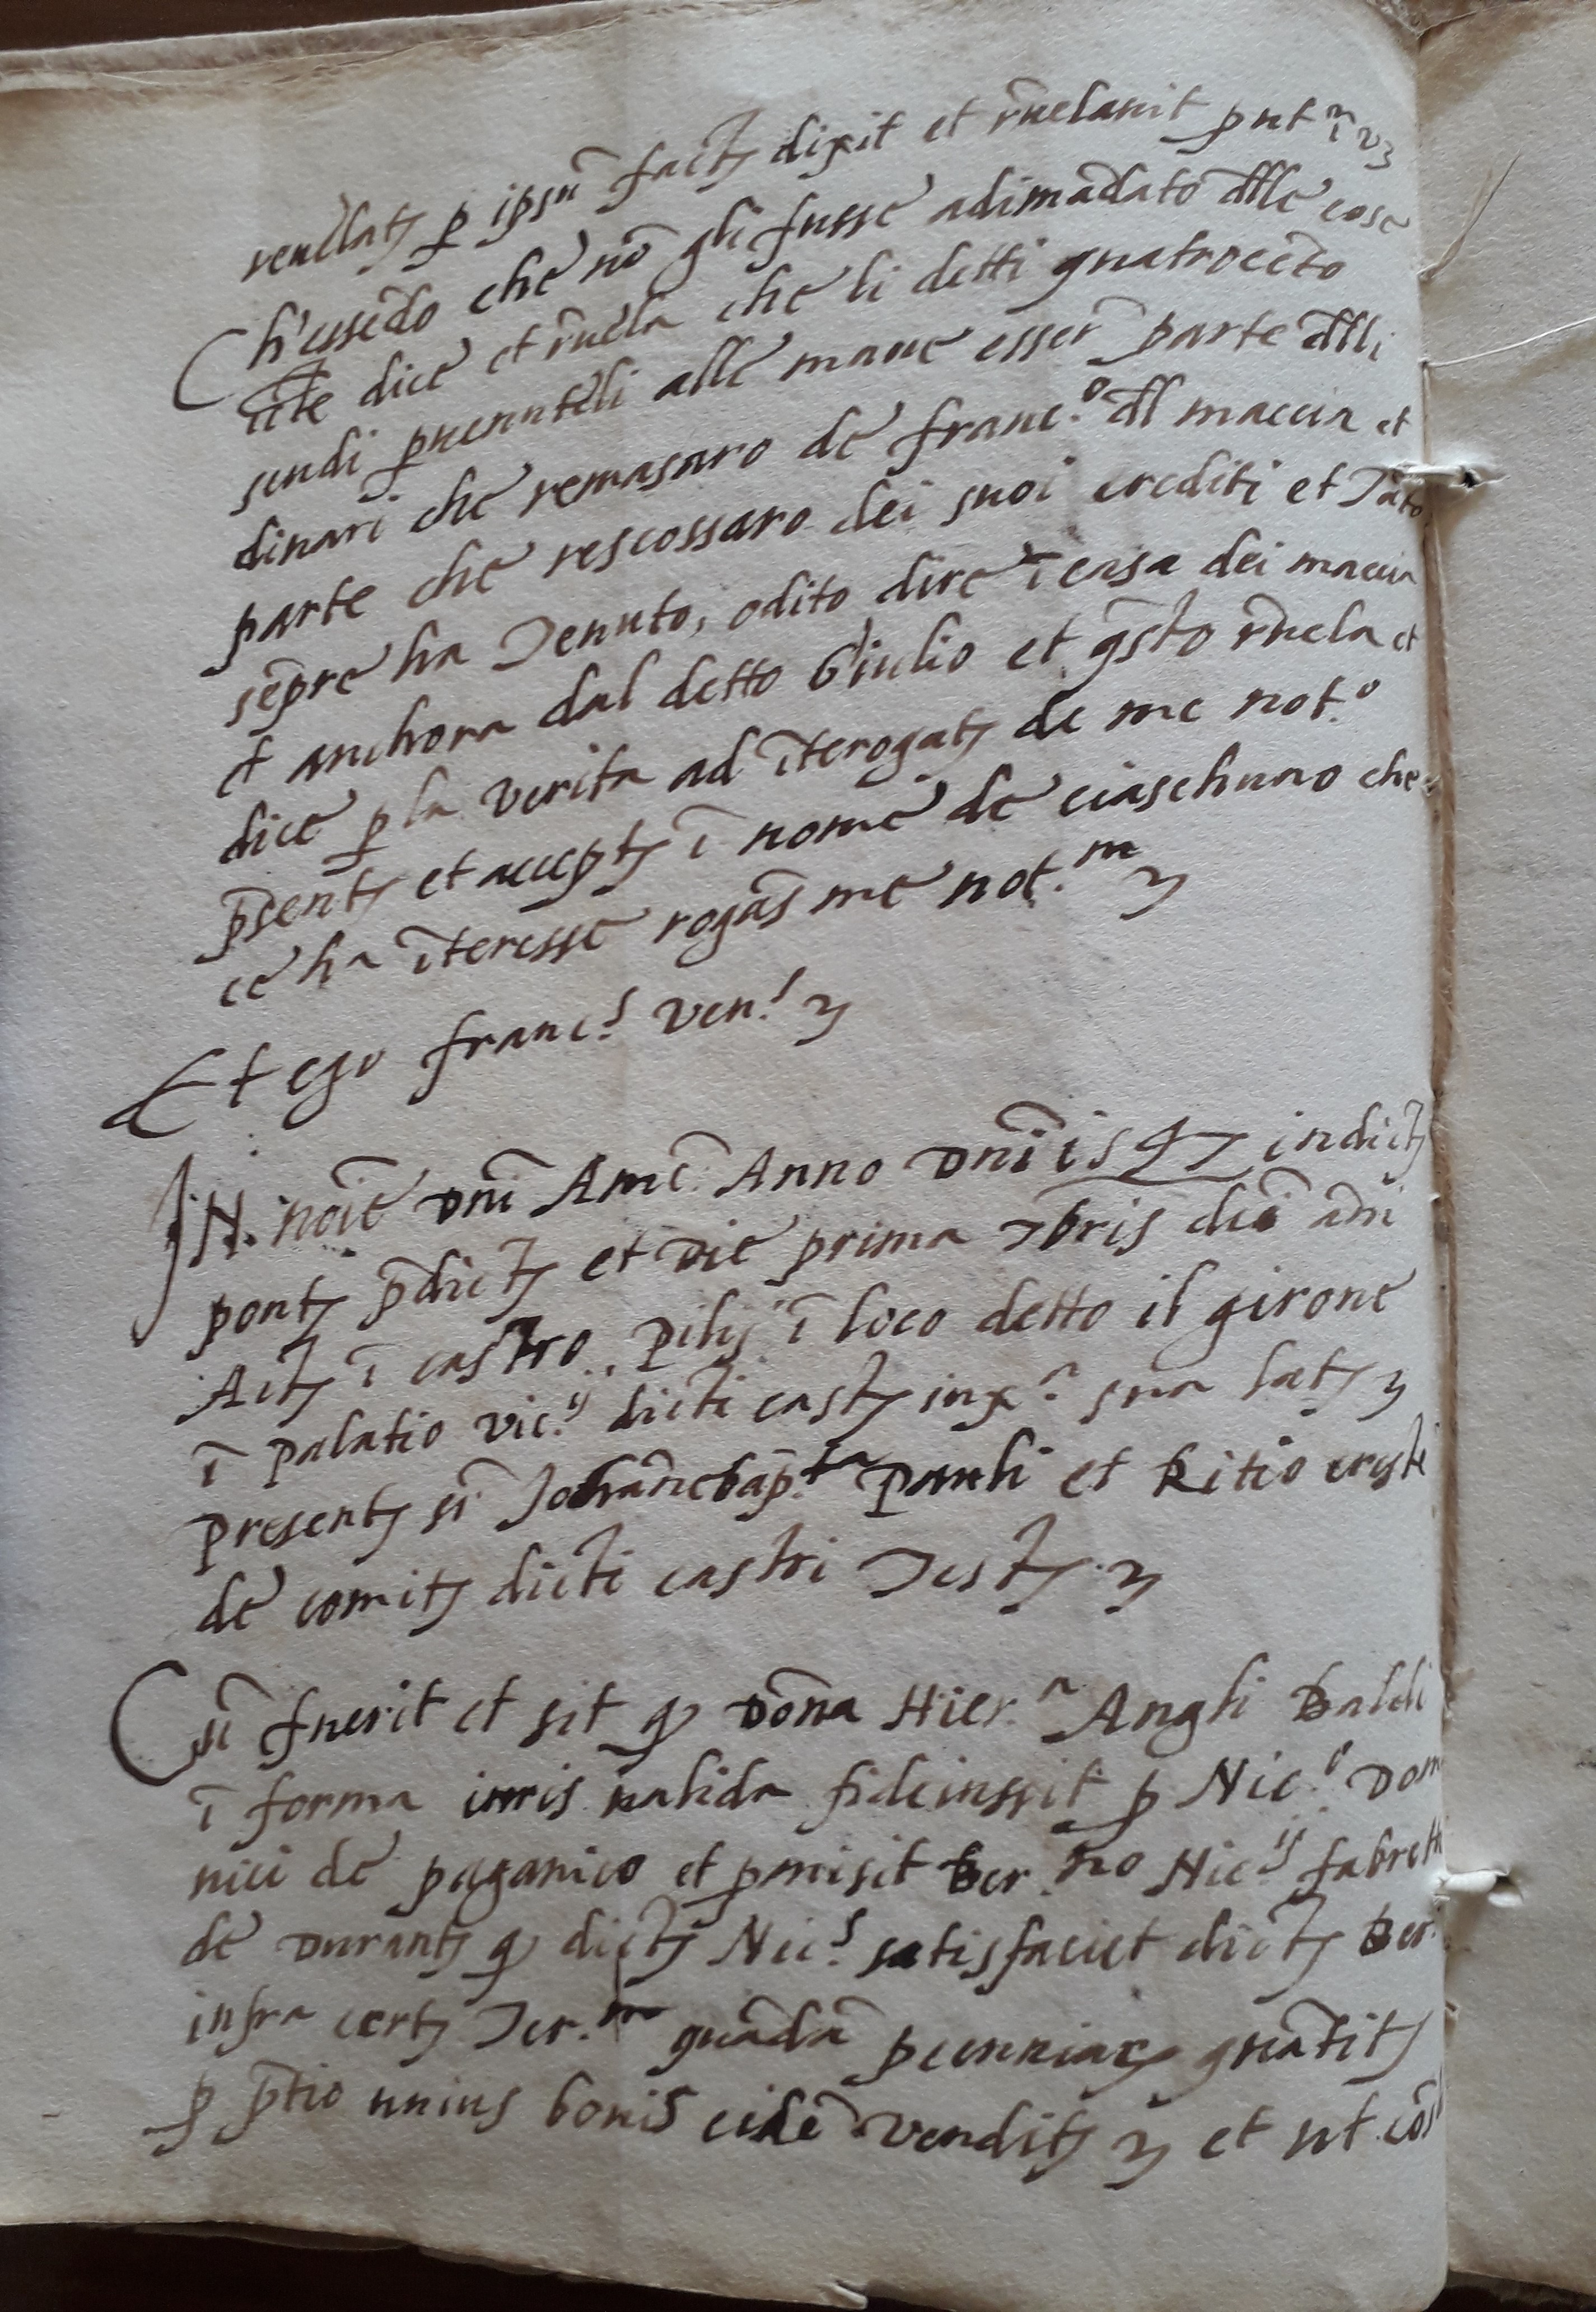 revelatz p ipsũ factz dixit et rĩvelavit put ĩ vz
Ch'essẽdo che nõ gli fusse adimãdato dlle cose
ĩcte dice et rĩvela che li detti quatrocẽto
scudi pvenuteli alle mane esser̃ parte dlli
dinari che remasaro de franc.º dl maccia et
parte che rescossaro dei suoi crediti et Tãto
sẽpre ha Tenuto, odito dire ĩ casa dei maccia
et anchora dal detto Giulio et q̃sto rĩvela et
dice p la verita ad ĩterogatz de me not.º
p̃sentz et acceptz ĩ nome de ciaschuno che
ce ha ĩteresse rogãs me not.m z
Et ego franc.s Ven.s z
IN. noĩe Dnĩ Amẽ. Anno Dnĩ 1597 indictz
pontz p̃dictz et Die prima 7bris dicĩ añi
Actz ĩ castro Pilij ĩ loco detto il girone
ĩ Palatio vic.ij dicti castz iux.a sua latz z
Presentz sĩ Johãnebap.ta Pauli et Ritio
de comitz dicti castri Testz z
Cũ fuerit et sit q Dõna Hier.a Angli Baldi
ĩ forma iuris valida fideiussit p Nic.o Dom
nici de paganico et pmisit Ber.no Nic.ij fabretti
de Durantz q dictz Nic.s satisfaciet dictz Ber.
infra certz Ter.m quãdã pecuniarz quãtitz
p p̃tio unius bovis eidẽ venditz z et ut cõs